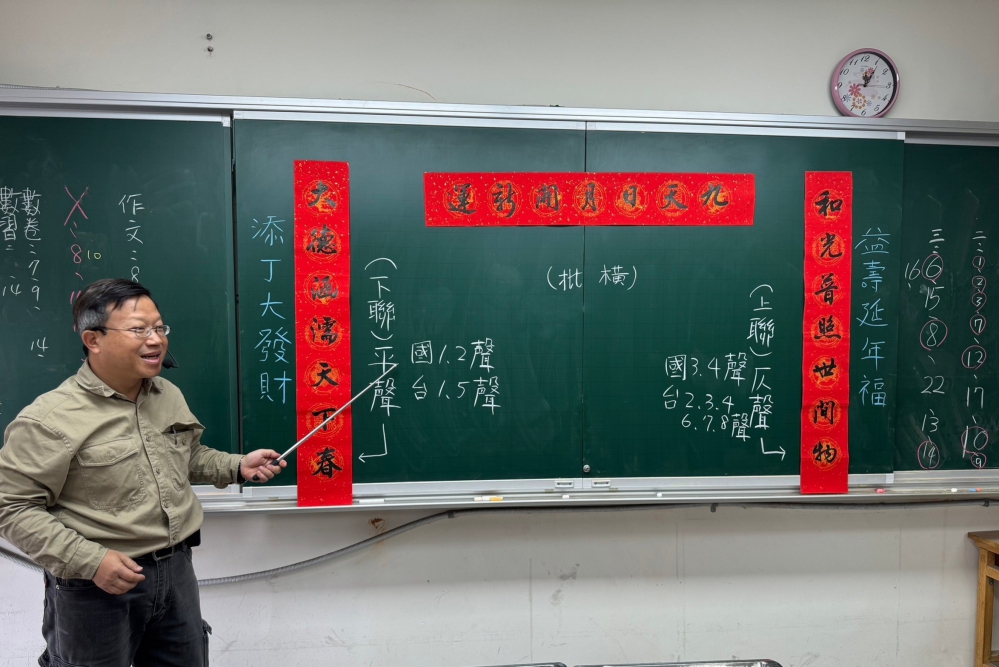 九天日月開新運
(橫批)
和光普照世間物
益壽延年福
(上聯)仄聲
國3.4聲
台2.3.4
6.7.8聲
大德涵濡天下春
添丁大發財
(下聯)平聲
國1.2聲
台1.5聲
二、1、2、3、7、12、17
三、6、
16、
15
8、
22
13
14
作文:8
8、
10
數卷:7、9、14
數習:14